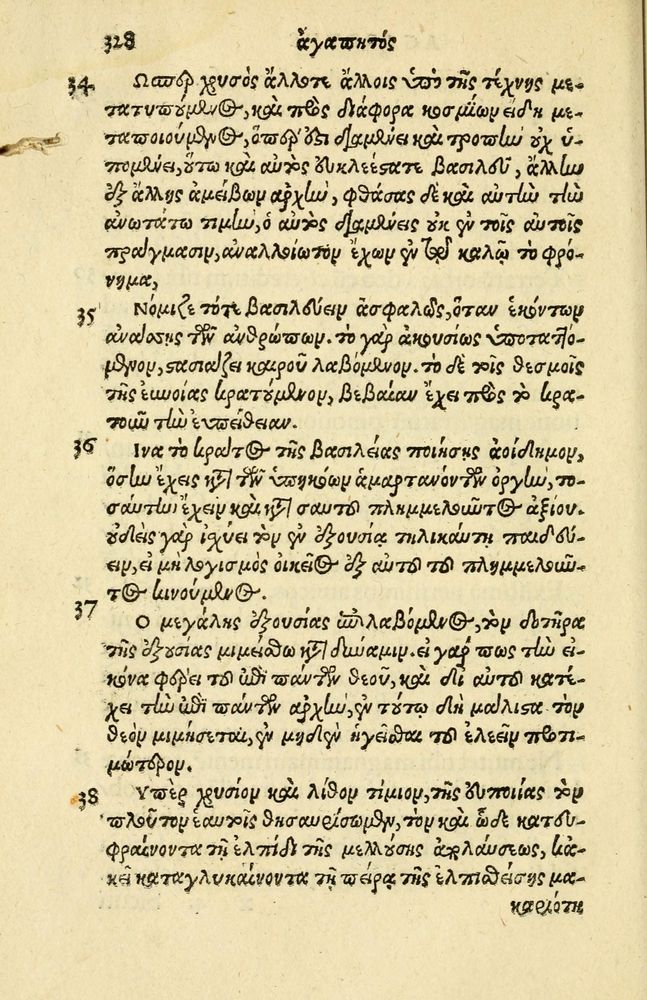 328 ἀγαπητός
34 Ὥσπερ χρυσὸς ἄλλοτε ἄλλοις ὑπὸ τῆς τέχνης με-
τατυπούμενος, καὶ πρὸς διάφορα κοσμίων εἴδη με-
ταποιούμενος, ὅπερ ἐστὶ διαμένει καὶ τροπὴν οὐχ ὑ-
πομένει, οὕτω καὶ αὐτὸς εὐκλεέστατε βασιλεῦ, ἄλλην
ἐξ ἄλλης ἀμείβων ἀρχὴν, φθάσας δὲ καὶ αὐτὴν τὴν
ἀνωτάτω τιμὴν, ὁ αὐτὸς διαμένεις οὐκ ἐν τοῖς αὐτοῖς
πράγμασιν, ἀναλλοίωτον ἔχων ἐν τῷ καλῷ τὸ φρό-
νημα,
35 Νόμιζε τότε βασιλεύειν ἀσφαλῶς, ὅταν ἑκόντων
ἀνάσσῃς τῶν ἀνθρώπων. τὸ γὰρ ἀκουσίως ὑποταττό-
μενον, στασιάζει καιροῦ λαβόμενον. τὸ δὲ τοῖς θεσμοῖς
τῆς εὐνοίας κρατούμενον, βεβαίαν ἔχει πρὸς τὸ κρα-
τοῦν τὴν εὐπείθειαν.
36 Ἵνα τὸ κράτος τῆς βασιλείας ποιήσῃς ἀοίδημον,
ὅσην ἔχεις κατὰ τῶν ὑπηκόων ἁμαρτανόντων ὀργὴν, το-
σαύτην ἔχειν καὶ κατὰ σαυτοῦ πλημμελοῦντος ἀξίου.
οὐδεὶς γὰρ ἰσχύει τὸν ἐν ἐξουσίᾳ τηλικαύτῃ παιδεύ-
ειν, εἰ μὴ λογισμὸς οἰκεῖος ἐξ αὐτοῦ τοῦ πλημμελοῦν-
τος κινούμενος.
37 Ὁ μεγάλης ἐξουσίας ἐπιλαβόμενος, τὸν δοτῆρα
τῆς ἐξουσίας μιμείσθω κατὰ δύναμιν. εἰ γάρ πως τὴν εἰ-
κόνα φέρει τοῦ ἐπὶ πάντων θεοῦ, καὶ δι᾽ αὐτοῦ κατέ-
χει τὴν ἐπὶ πάντων ἀρχὴν, ἐν τούτῳ δὴ μάλιστα τὸν
θεὸν μιμήσεται, ἐν μηδὲν ἡγεῖσθαι τοῦ ἐλεεῖν προτι-
μώτερον.
38 Ὑπὲρ χρυσίον καὶ λίθον τίμιον, τῆς εὐποιίας τὸν
πλοῦτον ἑαυτοῖς θησαυρίσωμεν, τὸν καὶ ὧδε κατευ-
φραίνοντα τῇ ἐλπίδι τῆς μελλούσης ἀπολαύσεως, κἀ-
κεῖ καταγλυκαίνοντα τῇ πείρᾳ τῆς ἐλπισθείσης μα-
καριότη